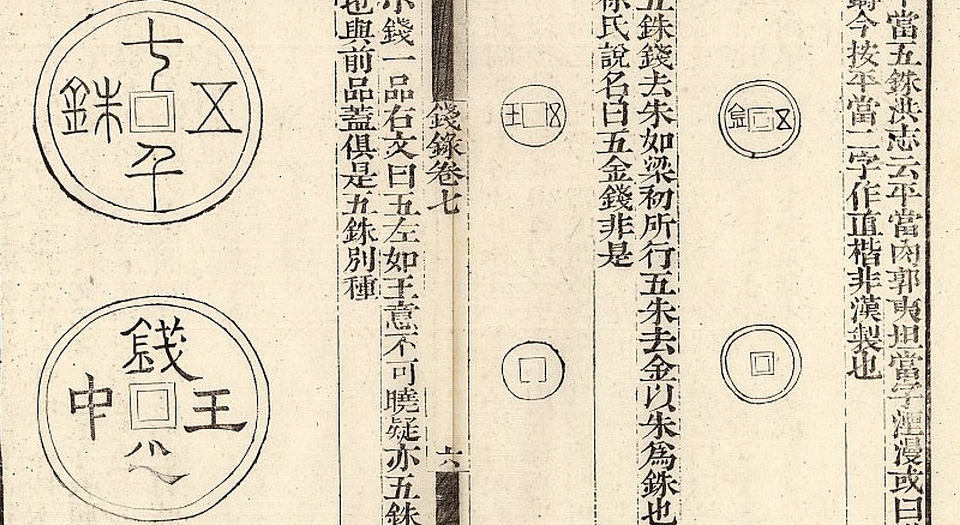 平當五銖洪志云平當內郭夷坦當字湮漫或曰
鑄今按平當二字作直楷非漢製也
五金
五銖錢去朱如梁初所行五朱去金以朱爲銖也
徐氏說名曰五金錢非是
五王
錢錄卷七
六
小錢一品右文曰五左如王意不可曉疑亦五銖
也與前品蓋俱是五銖別種
五銖
錢
王
中